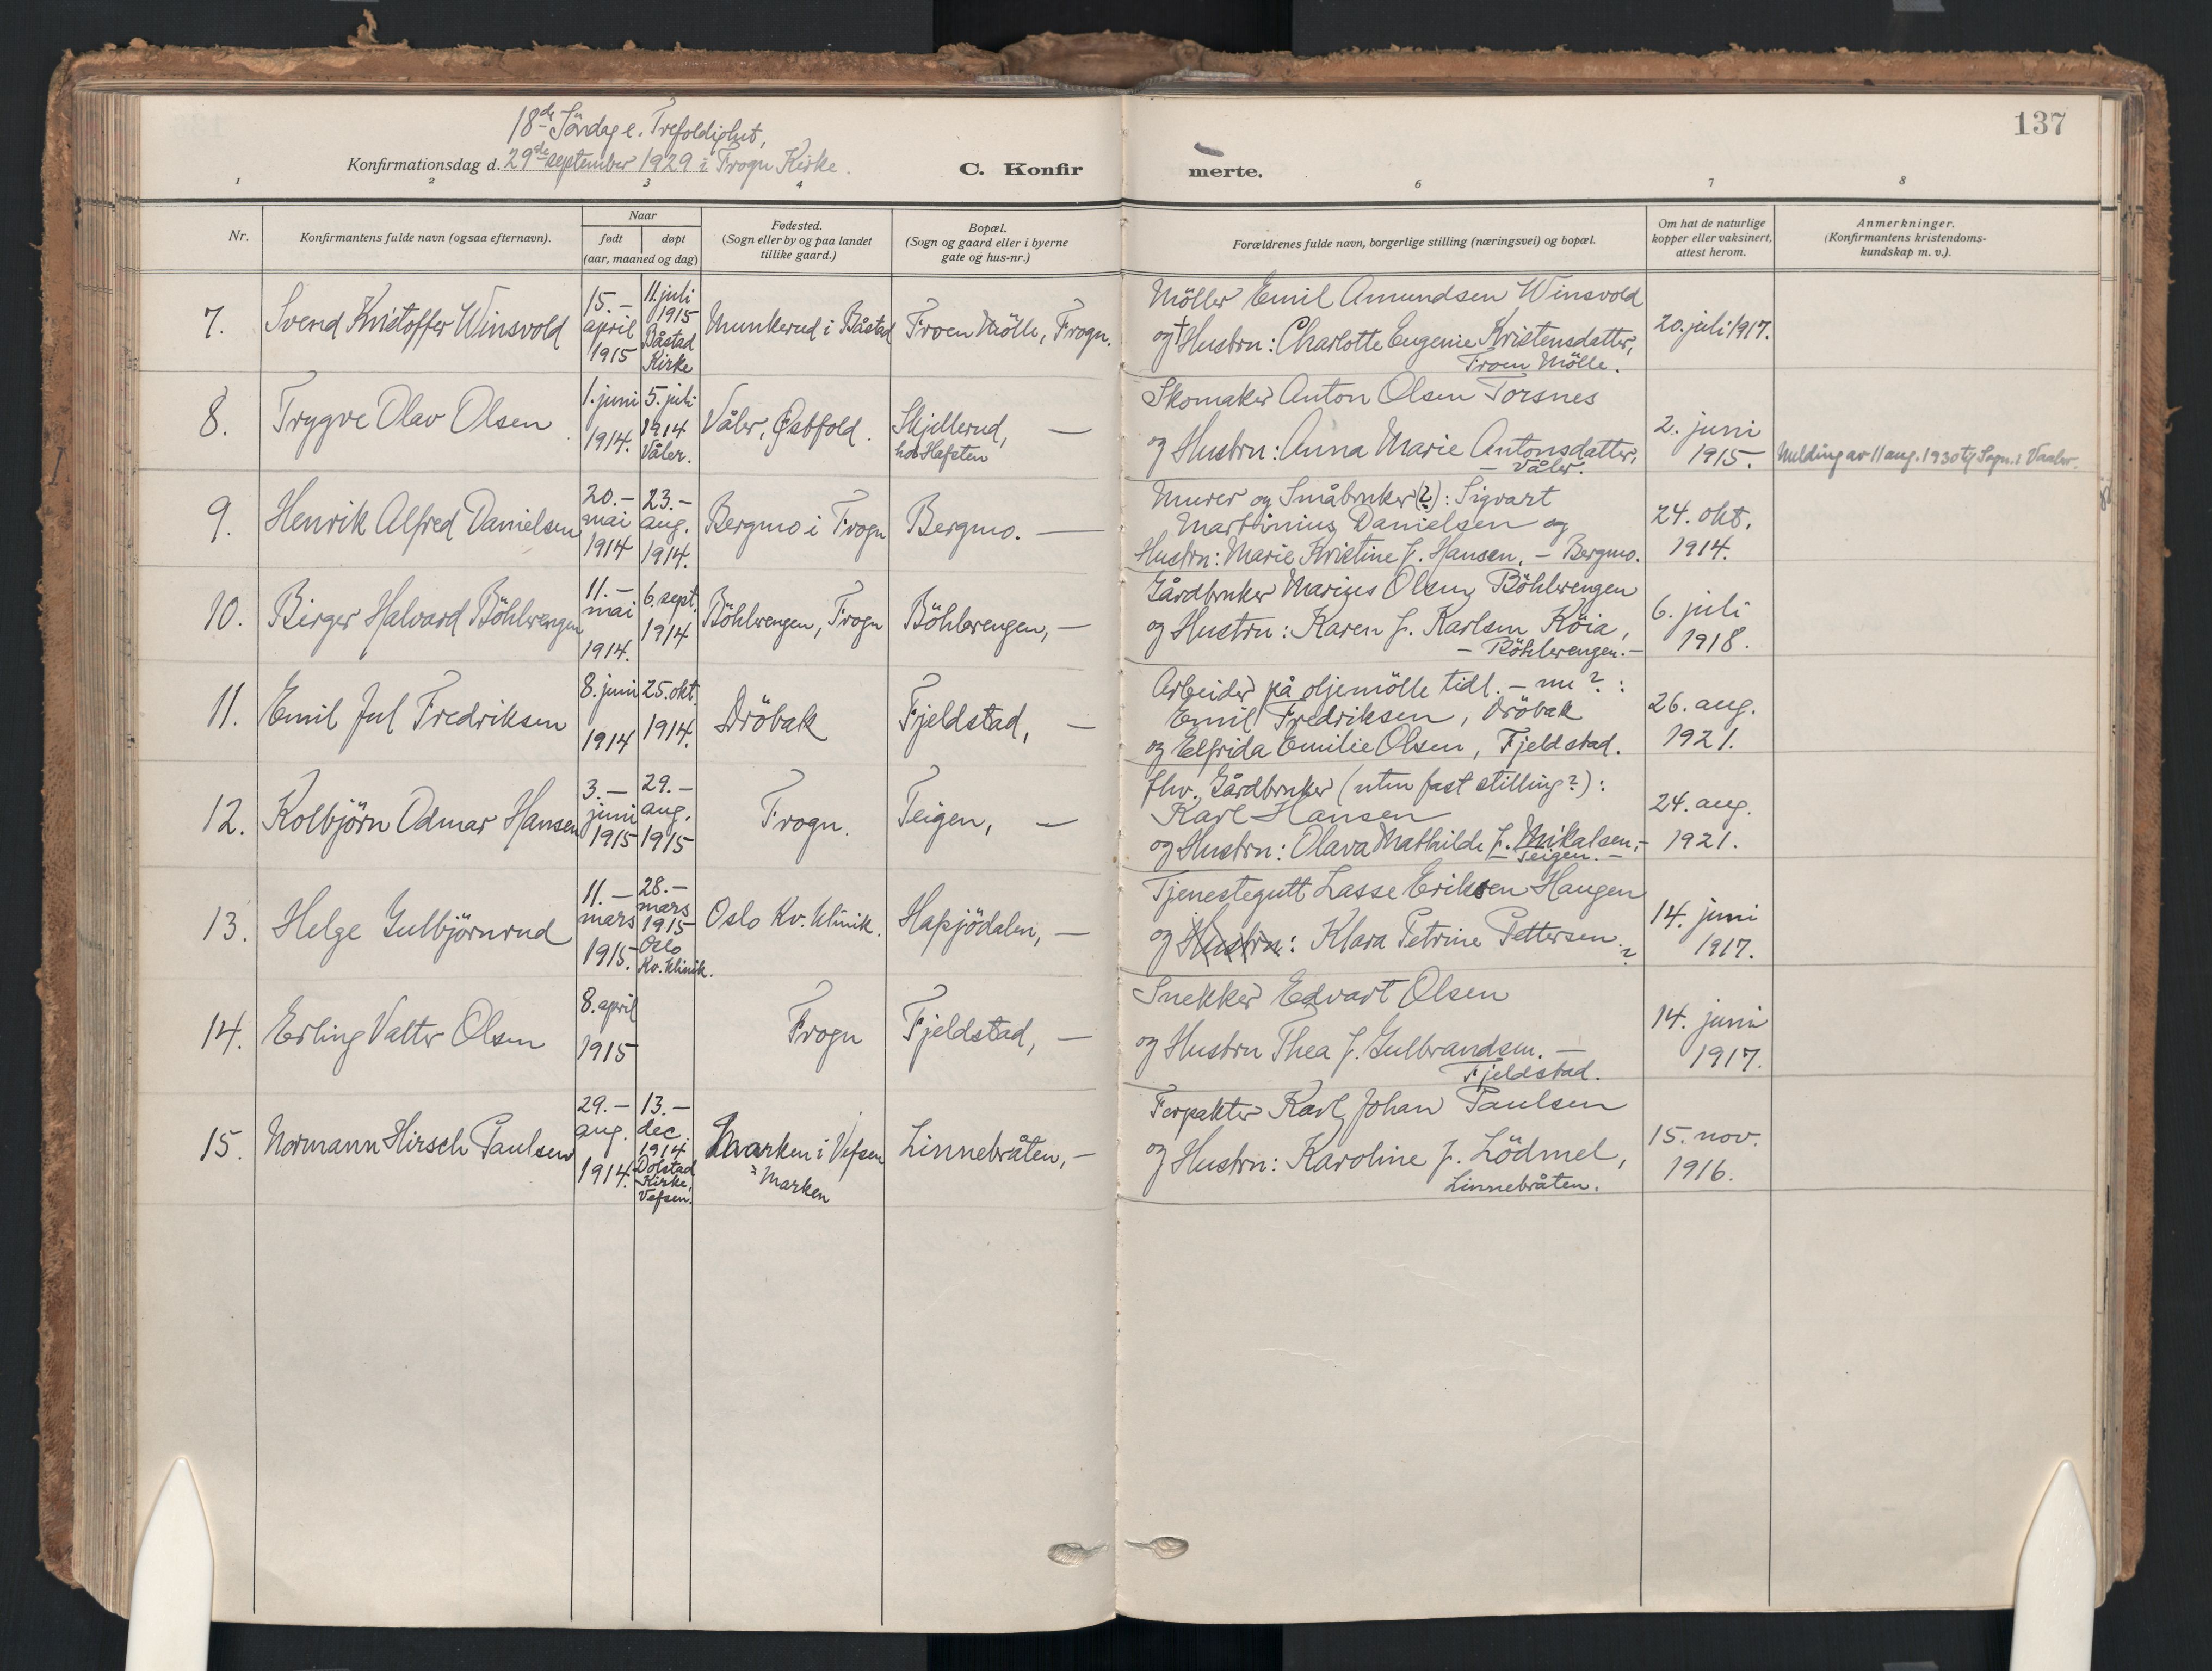 137
18de Söndag e. Trefoldighet,
Konfirmationsdag d. 29de september 1929 i Frogn Kirke.
C. Konfirmerte.
1 2 3 4 6 7 8
Nr.
Konfirmantens fulde navn (ogsaa efternavn).
Naar
født
døpt
(aar, maaned og dag)
Fødested.
(Sogn eller by og paa landet
tillike gaard.)
Bopæl.
(Sogn og gaard eller i byerne
gate og hus-nr.)
Forældrenes fulde navn, borgerlige stilling (næringsvei) og bopæl.
Om hat de naturlige
kopper eller vaksinert,
attest herom.
Anmerkninger.
(Konfirmantens kristendoms-
kundskap m. v.).
7.
Svend Kristoffer Winsvold
15. –
april
1915
11. juli
1915
Båstad
Kirke
Munkerud i Båstad
Froen Mölle, Frogn.
Möller Emil Amundsen Winsvold
og † Hustru: Charlotte Eugenie Kristensdatter,
Froen Mölle.
20. juli 1917.
8.
Trygve Olav Olsen
1. juni
1914.
5. juli
1914
Våler.
Våler, Østfold.
Skjellerud, —
hos Hafsten
Skomaker Anton Olsen Torsnes
og Hustru: Anna Marie Antonsdatter,
– Våler.
2. juni
1915.
Melding av 11 aug. 1930 til Sogn. i Vaaler.
9.
Henrik Alfred Danielsen
20. –
mai
1914
23. –
aug.
1914.
Bergmo i Frogn
Bergmo. —
Murer og Småbruker (?): Sigvart
Marthinius Danielsen og
Hustru: Marie Kristine f. Hansen. – Bergmo.
24. okt.
1914.
10.
Birger Halvard Böhlerengen
11. –
mai
1914.
6. sept.
1914
Böhlerengen, Frogn
Böhlerengen, —
Gårdbruker Marius Olsen Böhlerengen
og Hustru: Karen f. Karlsen Köia,
– Böhlerengen. –
6. juli
1918.
11.
Emil Jul Fredriksen
8. juni
1914
25. okt.
1914.
Dröbak
Fjeldstad, —
Arbeider på oljemölle tidl. – nu?:
Emil Fredriksen, Dröbak
og Elfrida Emilie Olsen, Fjeldstad.
26. aug.
1921.
12.
Kolbjörn Odmar Hansen
3. –
juni
1915
29. –
aug.
1915
Frogn.
Teigen, —
fhv. Gårdbruker (uten fast stilling?):
Karl Hansen
og Hustru: Olava Mathilde f. Mikalsen, –
– Teigen. –
24. aug.
1921.
13.
Helge Gulbjörnrud
11. –
mars
1915.
28. –
mars
1915
Oslo
Kv. klinik.
Oslo Kv. klinik.
Hasjödalen, —
Tjenestegutt Lasse Eriksen Haugen
og Hustru: Klara Petrine Pettersen. ?
14. juni
1917.
14.
Erling Valter Olsen
8. april
1915
Frogn
Fjeldstad, —
Snekker Edvart Olsen
og Hustru Thea f. Gulbrandsen. –
Fjeldstad.
14. juni
1917.
15.
Normann Hirsch Paulsen
29. –
aug.
1914.
13. –
dec.
1914
Dolstad
Kirke,
Vefsen.
Marken i Vefsen
= Marken
Linnebråten, –
Forpakter Karl Johan Paulsen
og Hustru: Karoline f. Lödmel,
Linnebråten.
15. nov.
1916.